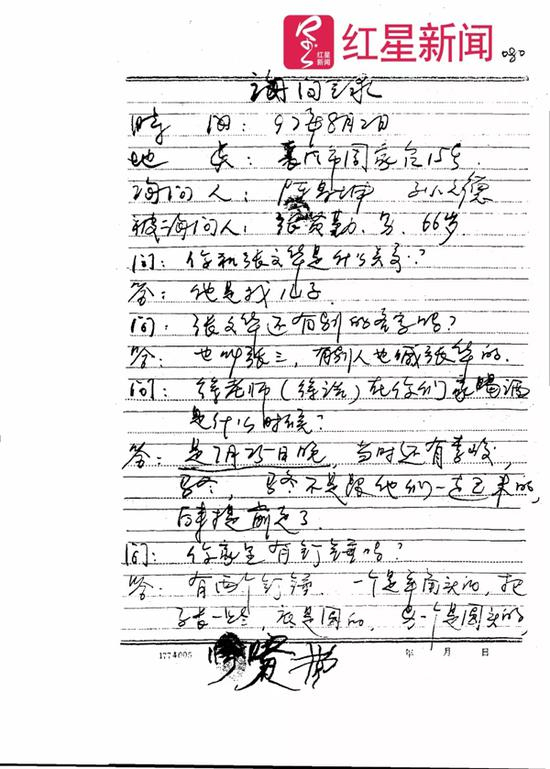 红星新闻
红星新闻
080
询问笔录
时 间：97年8月2日
地 点：襄 市周家 15号
询问人：陈 坤 孙 德
被询问人：张黄勤、男、66岁
问：你和张文华是什么关系？
答：他是我儿子
问：张文华还有别的名字吗？
答：也叫张三，有别人也喊张华的．
问：徐老师（徐浩）在你们家喝酒
是什么时候？
答：是7月25日晚，当时还有李 ，
马冬，马冬不是跟他们一起来的，
后来提前走了．
问：你家里有钉锤吗？
答：有两个钉锤．一个是 的，把
子长一些，底是圆的，另一个是圆头的，
1774005 年 月 日